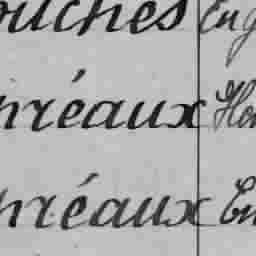 ouches Eug
préaux Hen
préaux Em